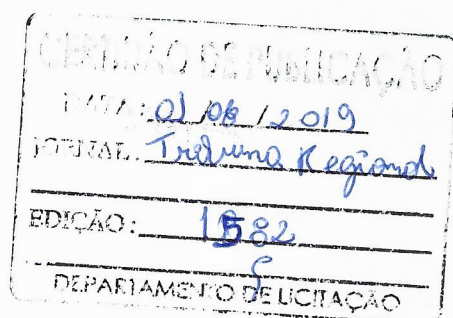 CERTIDÃO DE PUBLICAÇÃO
DATA: 01/08/2019
JORNAL: Tribuna Regional
EDIÇÃO: 1582
DEPARTAMENTO DE LICITAÇÃO